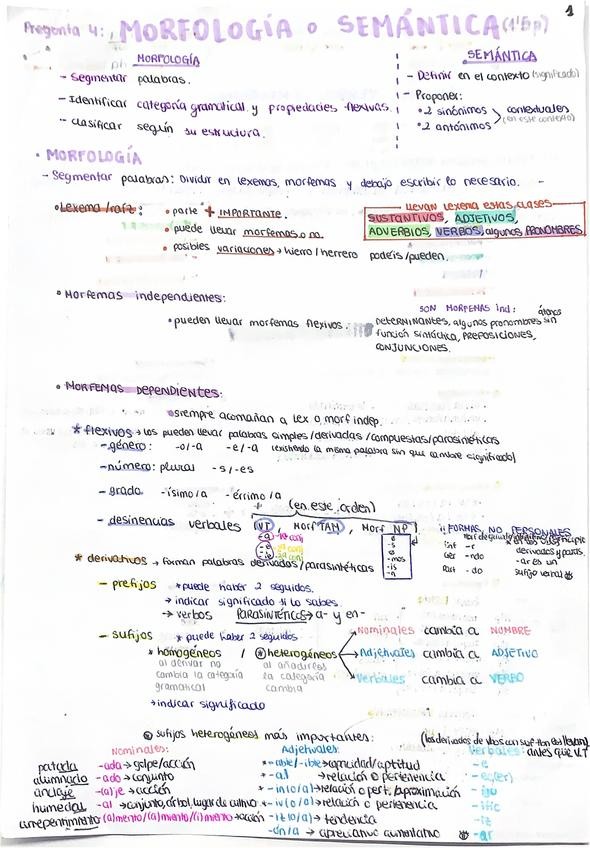 1
Pregunta 4: MORFOLOGÍA o SEMÁNTICA (1'5p)
MORFOLOGÍA
- Segmentar palabras.
- Identificar categoría gramatical y propiedades flexivas.
- clasificar según su estructura.
SEMÁNTICA
- Definir en el contexto (significado)
- Proponer:
• 2 sinónimos
• 2 antónimos
contextuales
(en este contexto)
• MORFOLOGÍA
- Segmentar palabras: Dividir en lexemas, morfemas y debajo escribir lo necesario.
• Lexema/raíz:
• parte + IMPORTANTE.
• puede llevar morfemas o no.
• posibles variaciones → hierro/herrero podéis/pueden.
llevan lexema estas clases
SUSTANTIVOS, ADJETIVOS,
ADVERBIOS, VERBOS, algunos PRONOMBRES
• Morfemas independientes:
• pueden llevar morfemas flexivos.
SON MORFEMAS ind: átonos
DETERMINANTES, algunos pronombres sin
función sintáctica, PREPOSICIONES,
CONJUNCIONES.
• MORFEMAS DEPENDIENTES:
• siempre acomañan a lex o morf indep.
* flexivos → los pueden llevar palabras simples/derivadas/compuestas/parasintéticas
- género: -o/-a -e/-a (existiendo la misma palabra sin que cambie significado)
- número: plural -s/-es
- grado -ísimo/a -érrimo/a
(en este orden)
- desinencias verbales VT, Morf TAM, Morf NP
-a- 1ª conj
-e- 2ª conj
-i- 3ª conj
-o
-s
-mos
-is
-n
¡¡FORMAS NO PERSONALES
inf -r
Ger -ndo
Part -do
derivados y paras.
-ar es un
sufijo verbal
* derivativos → forman palabras derivadas/parasintéticas
- prefijos * puede haber 2 seguidos.
→ indicar significado si lo sabes.
→ verbos PARASINTÉTICOS → a- y en-
- sufijos * puede haber 2 seguidos
* homogéneos / * heterogéneos
al derivar no
cambia la categoría
gramatical
al añadirles
la categoría
cambia
Nominales cambia a NOMBRE
Adjetivales cambia a ADJETIVO
Verbales cambia a VERBO
→ indicar significado
sufijos heterogéneos más importantes:
Nominales:
patada -ada → golpe/acción
alumnado -ado → conjunto
anclaje -(a)je → acción
humedal -al → conjunto, árbol, lugar de cultivo
arrepentimiento (a)mento/(a)miento/(i)miento → acción
Adjetivales:
* -able/-ible → capacidad/aptitud
* -al → relación o pertenencia
* -in(o/a) → relación o pert./aproximación
* -iv(o/a) → relación o pertenencia
-iz(o/a) → tendencia
-ón/a → apreciativo aumentativo
antes que VT
Verbales:
-e
-ec(er)
-igu
-ific
-iz
-ar